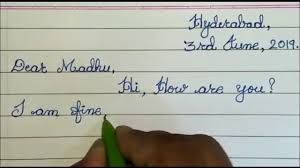 Hyderabad,
3rd June, 2019.
Dear Madhu,
Hi, How are you?
I am fine,